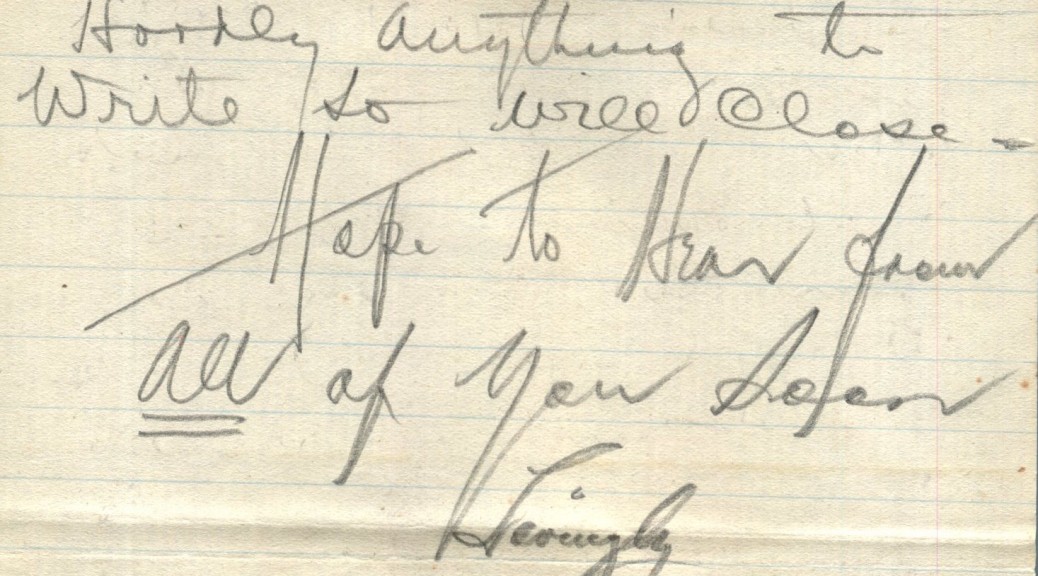 Hardly anything to
Write so will Close -
Hope to Hear from
all of You Soon
Lovingly